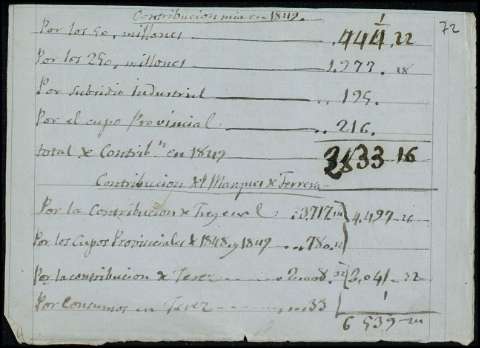 72
Contribucion mia en 1849.
Por los 50, millones 444. 22
Por los 250, millones 1.977. 28
Por subsidio industrial 195.
Por el cupo Provincial. 216.
total de Contrib.s en 1849 2833 16
Contribucion del Marques de Ferrera
Por la Contribucion de 3,717 4,497
Por los Cupos Provinciales de 1848, y 1849 780
Por la contribucion de 2,008. 2,041 32
Por Consumos en 33
6 539